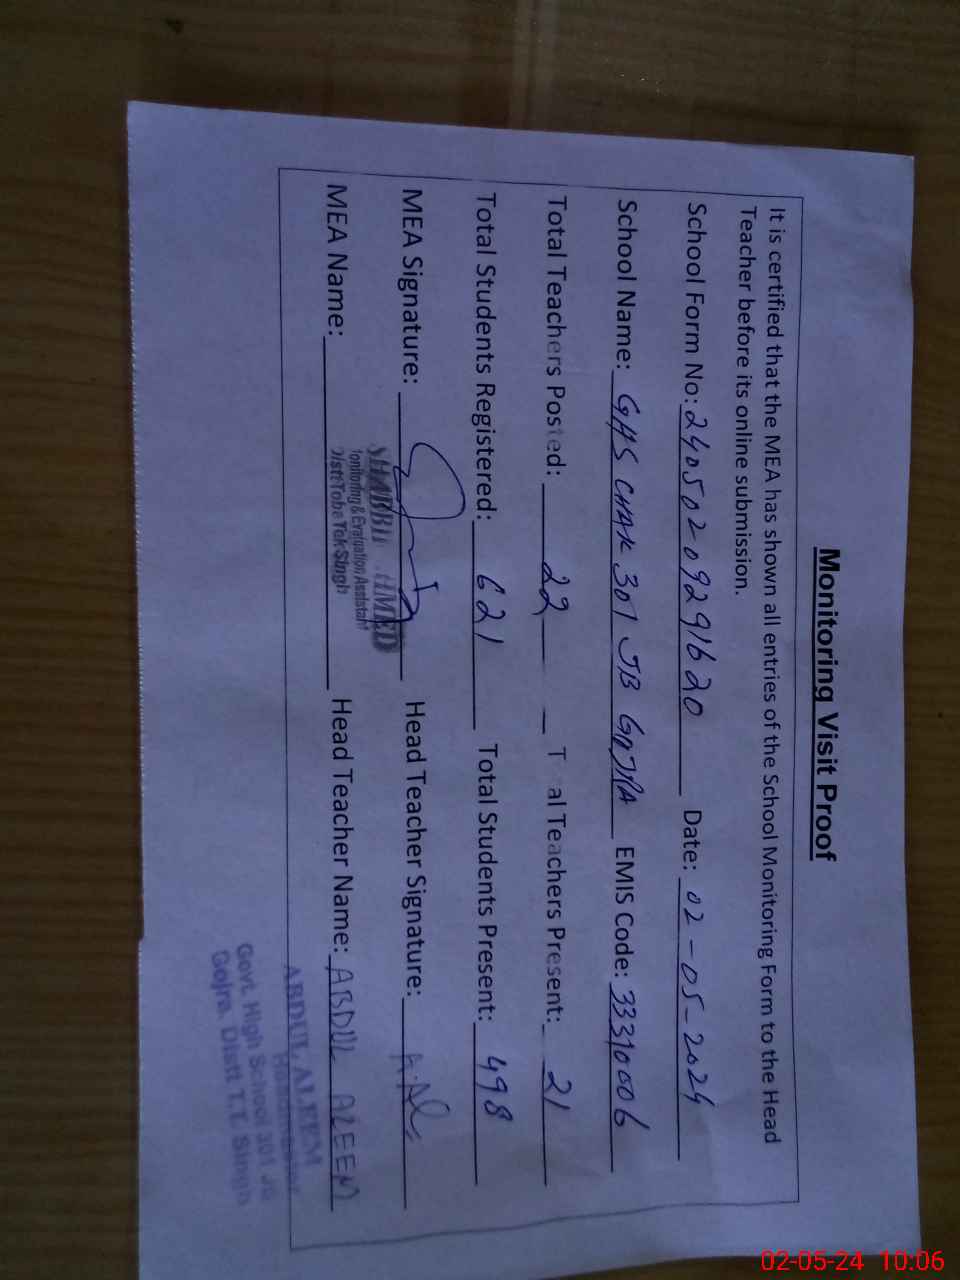 Monitoring Visit Proof
It is certified that the MEA has shown all entries of the School Monitoring Form to the Head
Teacher before its online submission.
School Form No: 24050209291620 Date: 02-05-2024
School Name: GHS CHAK 301 JB GOJRA EMIS Code: 33310006
Total Teachers Posted: 22 T al Teachers Present: 21
Total Students Registered: 621 Total Students Present: 498
MEA Signature: Head Teacher Signature:
MEA Name: Head Teacher Name: ABDUL ALEEM
onitoring & Evaluation Assistant
Distt Toba Tek Singh
ABDUL ALEEM
Headmaster
Govt. High School 301 JB
Gojra. Distt T.T. Singh
02-05-24 10:06